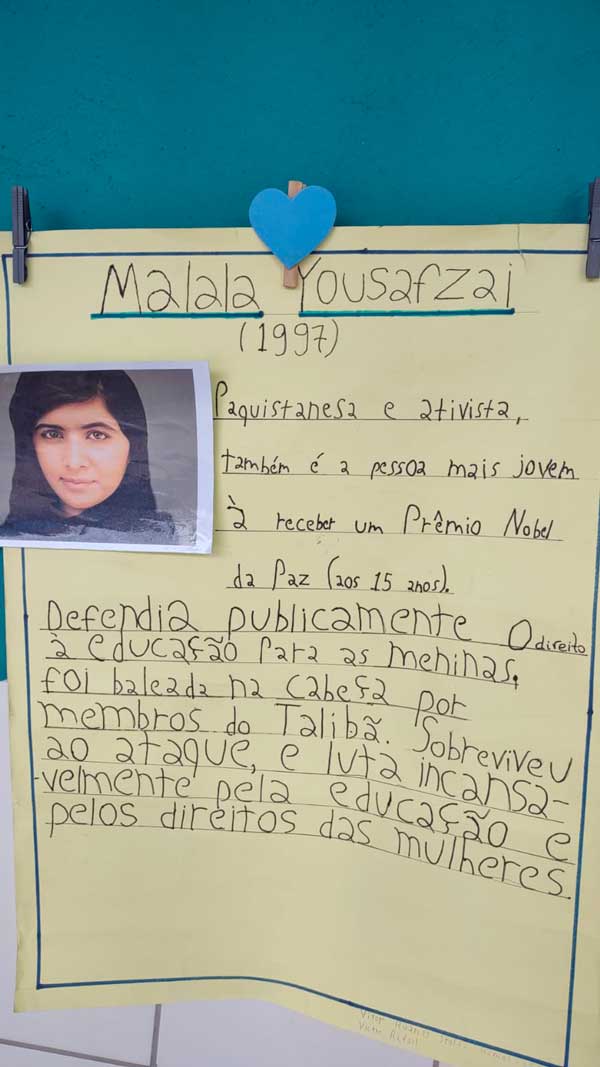 Malala Yousafzai
(1997)
Paquistanesa e ativista,
também é a pessoa mais jovem
à receber um Prêmio Nobel
da Paz (aos 15 anos).
Defendia publicamente O direito
à educação para as meninas.
foi baleada na cabeça por
membros do Talibã. Sobreviveu
ao ataque, e luta incansa-
-velmente pela educação e
pelos direitos das mulheres.
Vitor